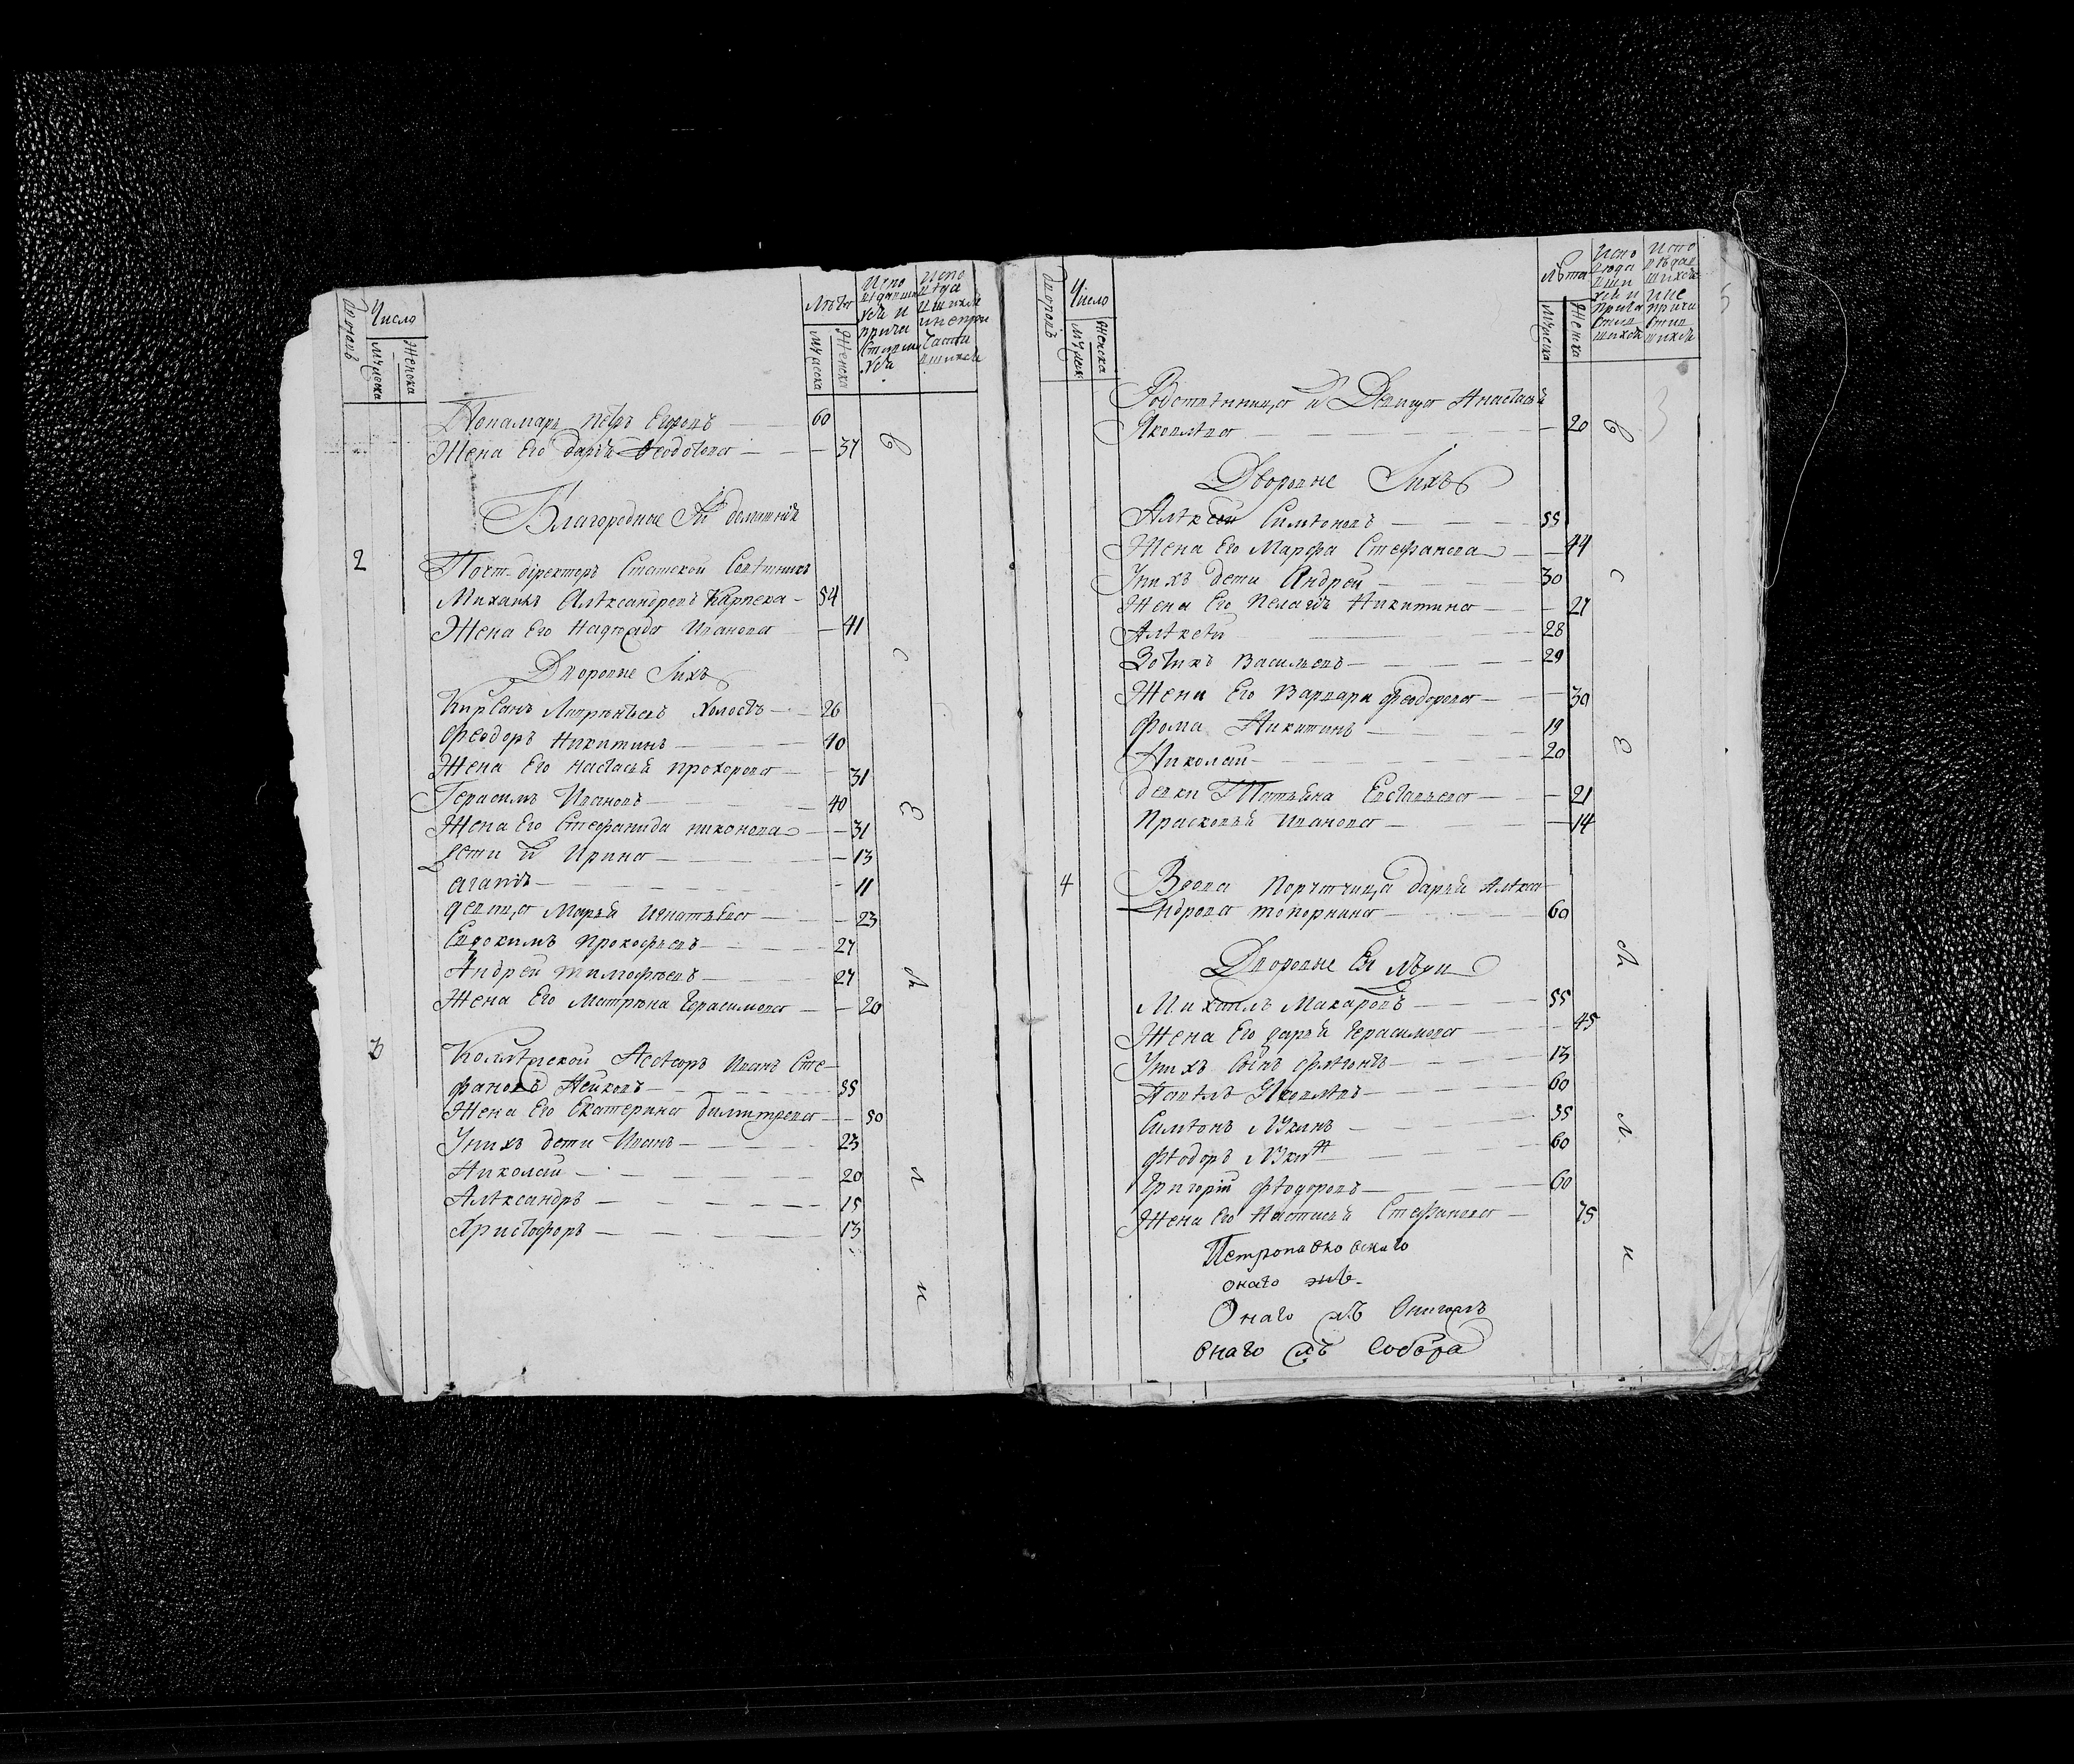 Число
Мужеска
Женска
Лета
Мужеска
Женска
Пономарь Петръ Егоровъ 60
Жена Его Дарья Федотова 37
Благородные
2
Пост-директоръ Статской Советникъ
Михаилъ Александровъ 54
Жена Его Надежда Иванова 41
Дворовые Ихъ
Холостъ 26
Феодоръ Никитинъ 40
Жена Его Настасья Прохорова 31
Герасимъ Ивановъ 40
Жена Его Стефанида Никонова 31
Дети Ирина 13
Агапия 11
Девица Марья Игнатьева 23
Евдокимъ Прокофьевъ 27
Андрей Тимофеевъ 27
Жена Его Матрена Герасимова 20
3
Коллежской Асесоръ Иванъ Сте-
фановъ 55
Жена Его Екатерина Димитрева 50
У них дети Иванъ 23
Николай 20
Александръ 15
Христофоръ 13
Число
Мужеск
Женска
Лета
Мужеска
Женска
Родственница Девица Анастасья
Яковлева 20
Дворовые Ихъ
Алексей Симеоновъ 55
Жена Его Марфа Стефанова 44
У них дети Андрей 30
Жена Его Пелагея Никитина 27
Алексей 28
Зотикъ Васильевъ 29
Жена Его Варвара Феодорова 30
Фома Никитинъ 19
Николай 20
Девки Татьяна Евстафьева 21
Прасковья Иванова 14
4
Вдова Порутчица Дарья Алекса
ндрова Топорнина 60
Дворовые Ея
Михаилъ Макаровъ 55
Жена Его Дарья Герасимова 45
У них сынъ 13
Павелъ Яковлевъ 60
Симеонъ Лукинъ 35
Феодоръ Лукин 60
Григорий Феодоровъ 60
Жена Его Настасья Стефанова 75
Петропавловскаго
онаго же
Онаго
онаго Собора